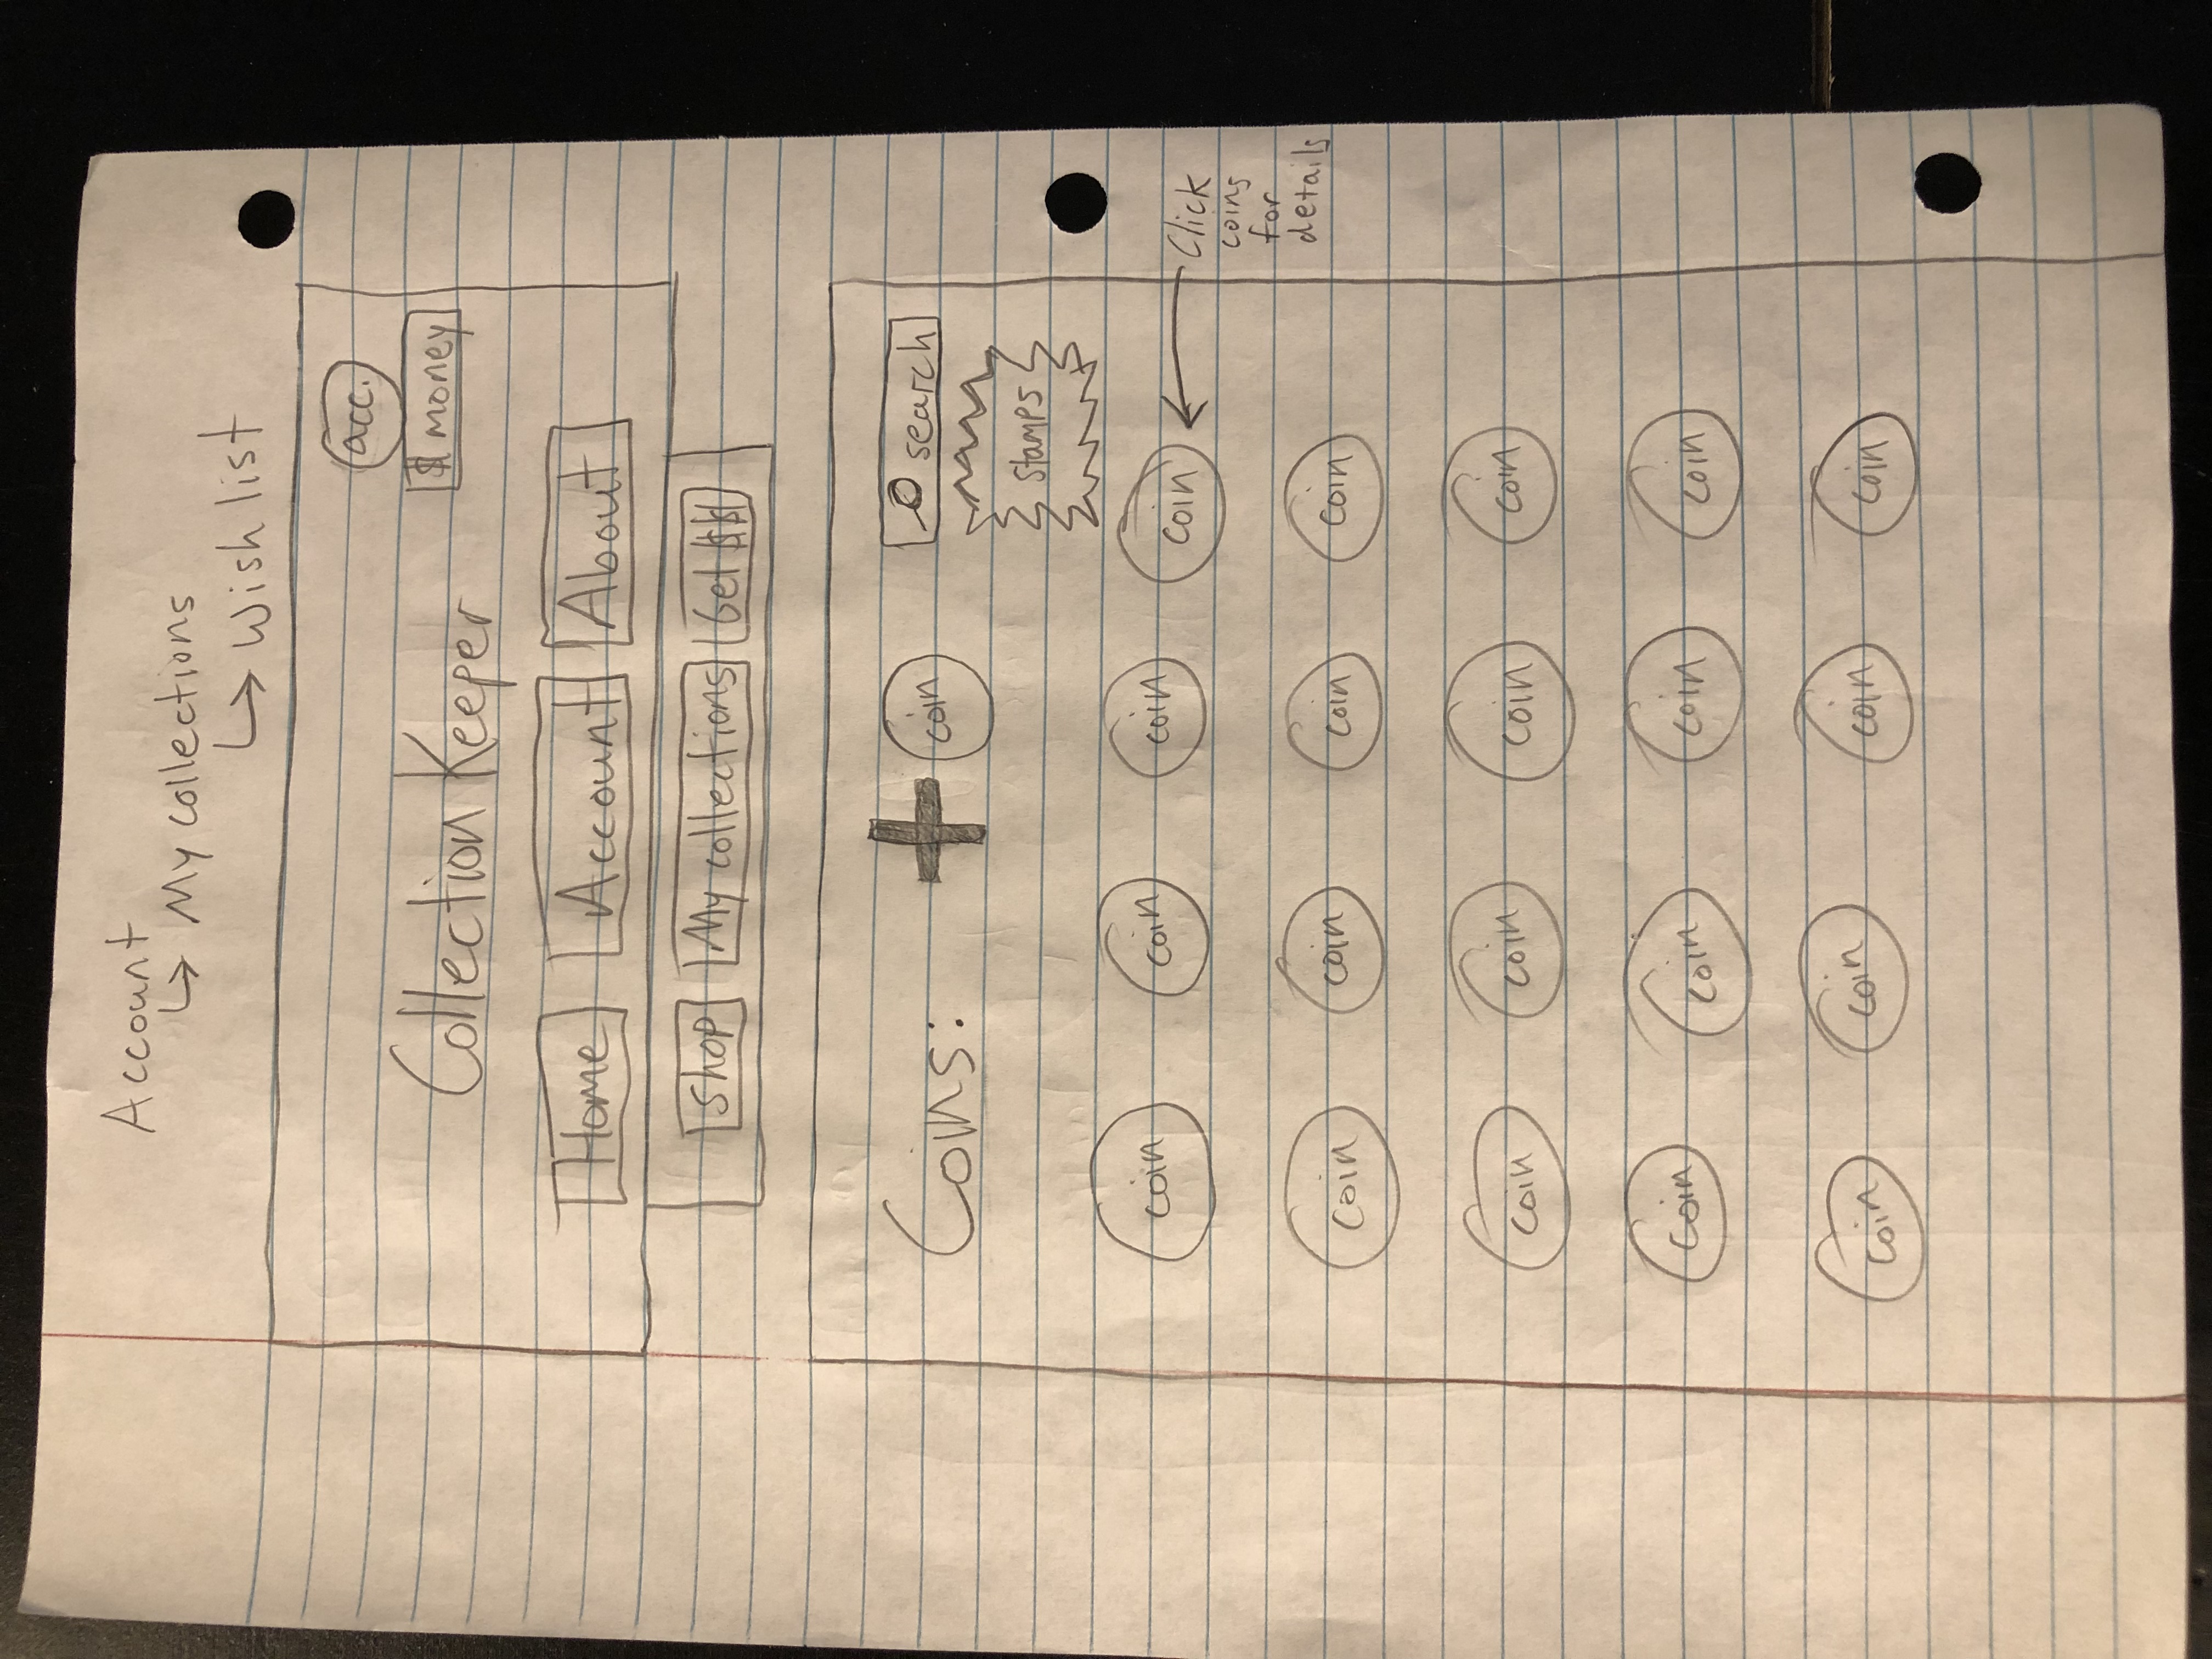 Account
↳ My collections
↳ Wish list
acc.
$ money
Collection Keeper
Home Account About
Shop My collections Get $$
Coins: + coin search
stamps
coin coin coin coin
Click
coins
for
details
coin coin coin coin
coin coin coin coin
coin coin coin coin
coin coin coin coin